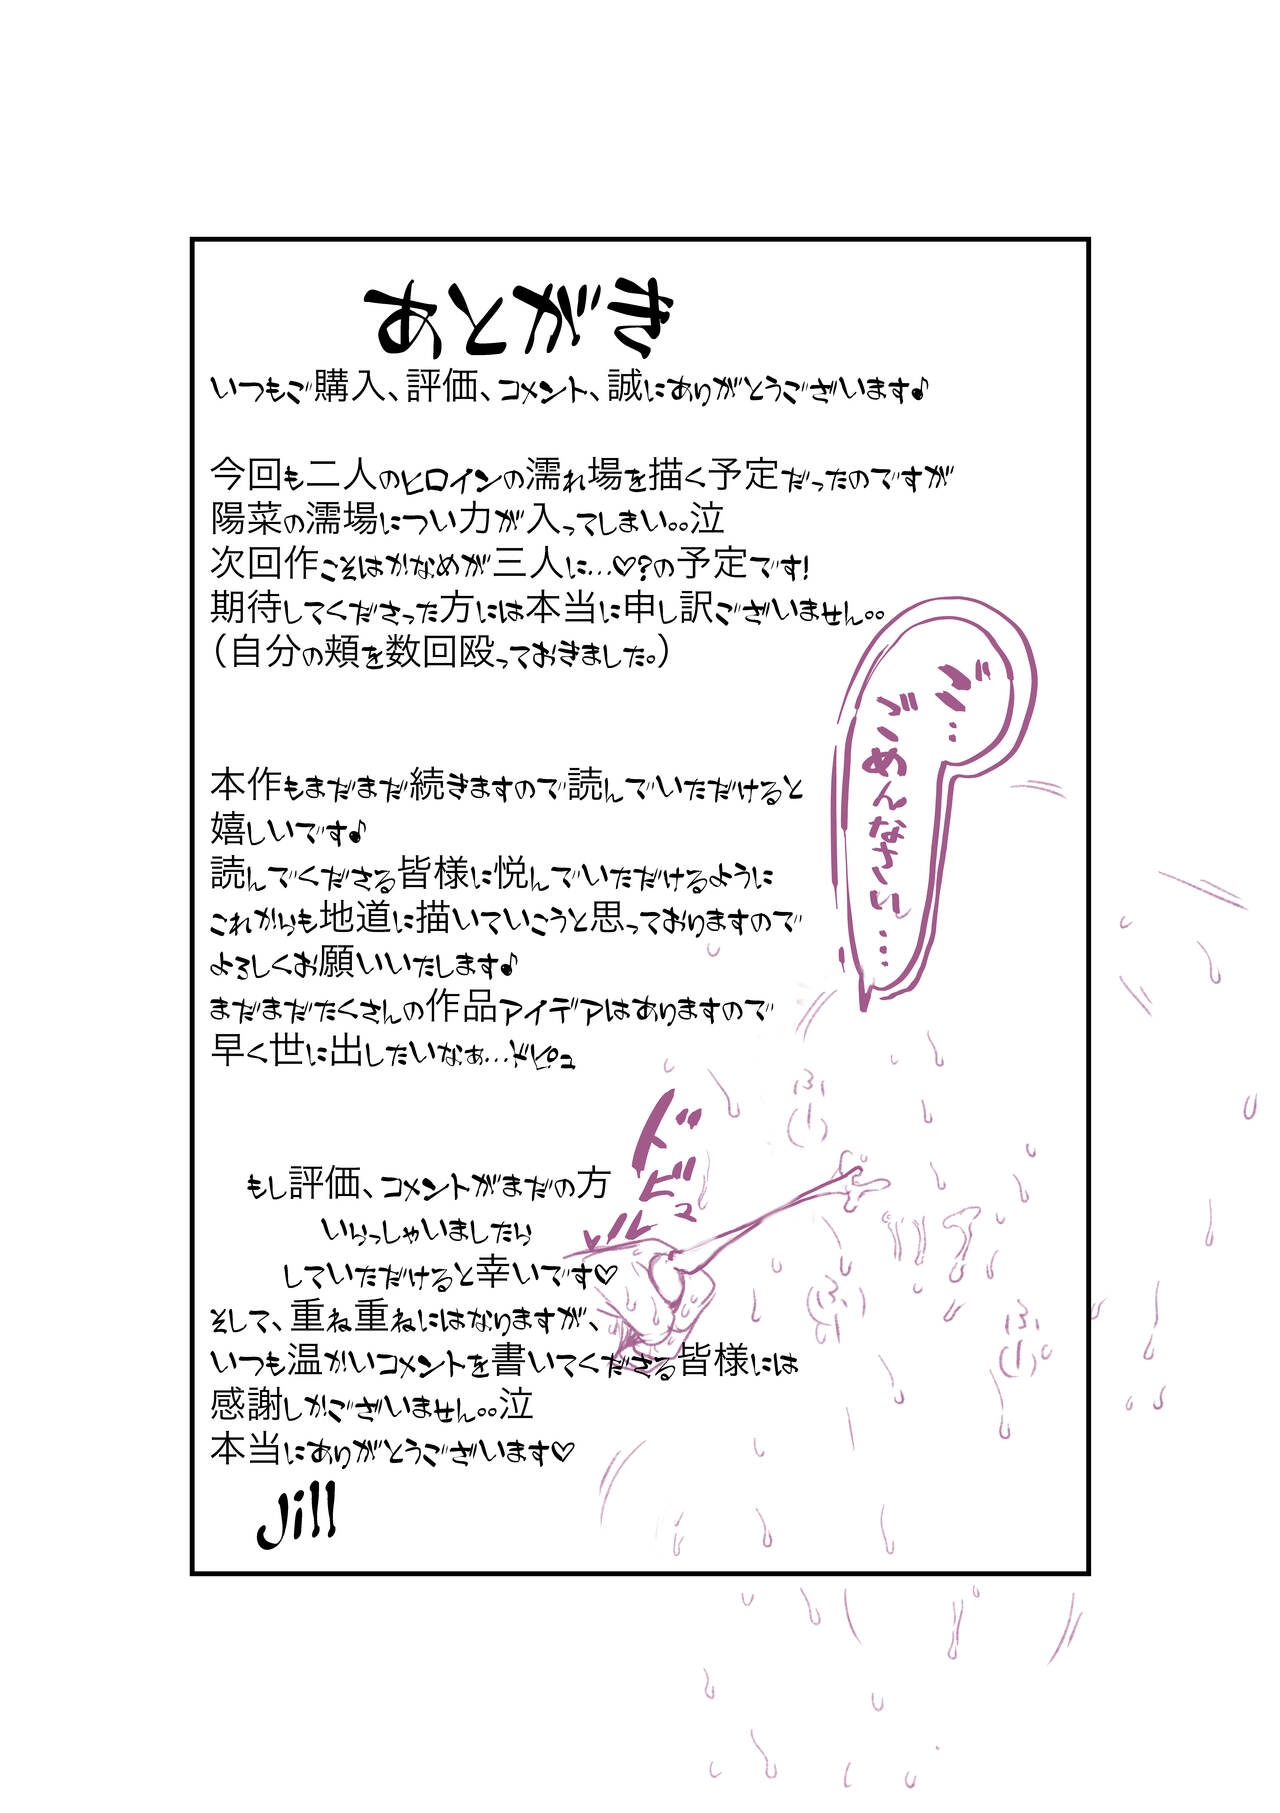 あとがき
いつもご購入、評価、コメント、誠にありがとうございます♪
今回も二人のヒロインの濡れ場を描く予定だったのですが
陽菜の濡場につい力が入ってしまい。。泣
次回作こそはかなめが三人に…♡?の予定です!
期待してくださった方には本当に申し訳ございません。。
(自分の頬を数回殴っておきました。)
ご…
ごめんなさい…
本作もまだまだ続きますので読んでいただけると
嬉しいです♪
読んでくださる皆様に悦んでいただけるように
これからも地道に描いていこうと思っておりますので
よろしくお願いいたします♪
まだまだたくさんの作品アイデアはありますので
早く世に出したいなぁ…ドピュ
ドビュルル
ふーっ
もし評価、コメントがまだの方
いらっしゃいましたら
していただけると幸いです♡
そして、重ね重ねにはなりますが、
いつも温かいコメントを書いてくださる皆様には
感謝しかございません。。泣
本当にありがとうございます♡
Jill
ふーっ
ふーっ